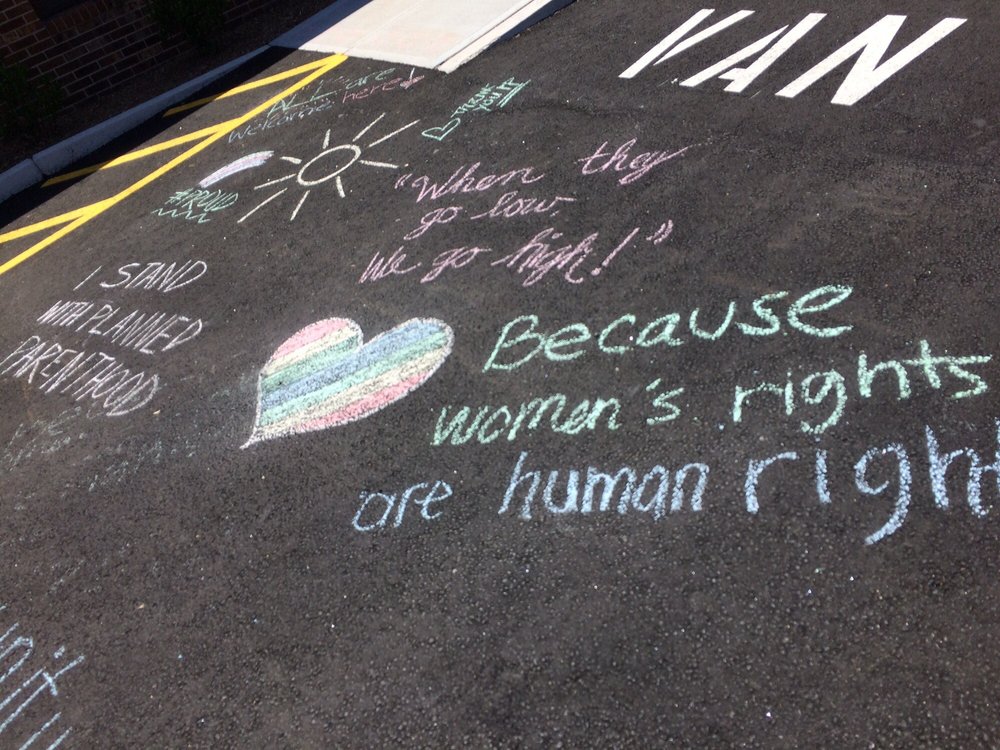 VAN
ALL are
welcome here!
THANK
YOU!!
#PROUD
"When they
go low.
We go high!"
I STAND
WITH PLANNED
PARENTHOOD
Because
women's rights
are human right